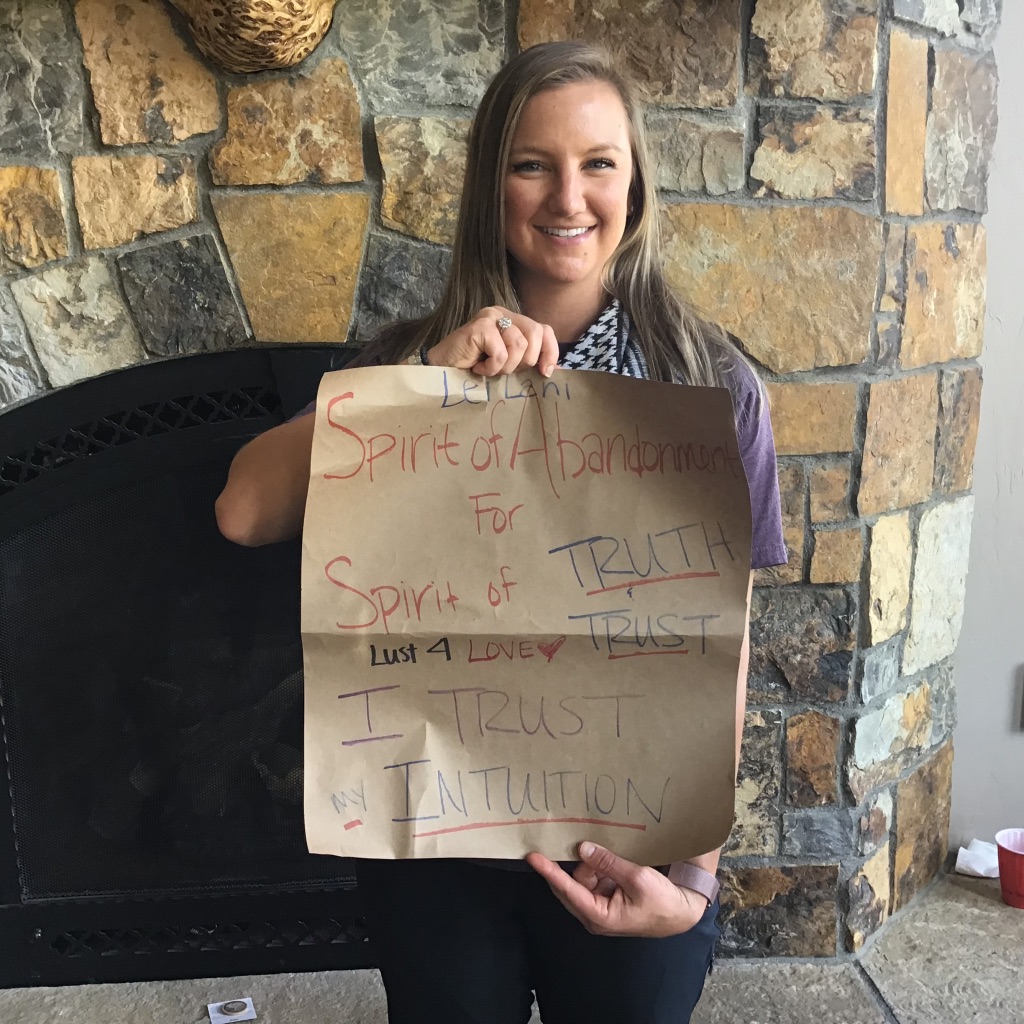 LeiLani
Spirit of Abandonment
For
Spirit of TRUTH
&
TRUST
Lust 4 LOVE
I TRUST
MY INTUITION